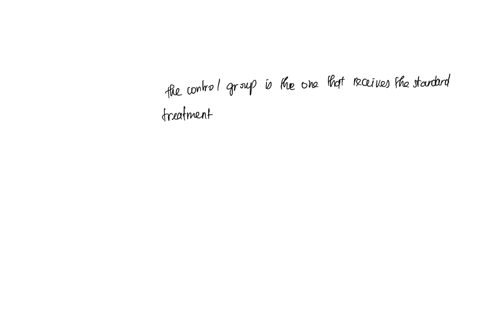 the control group is the one that receives the standard
treatment